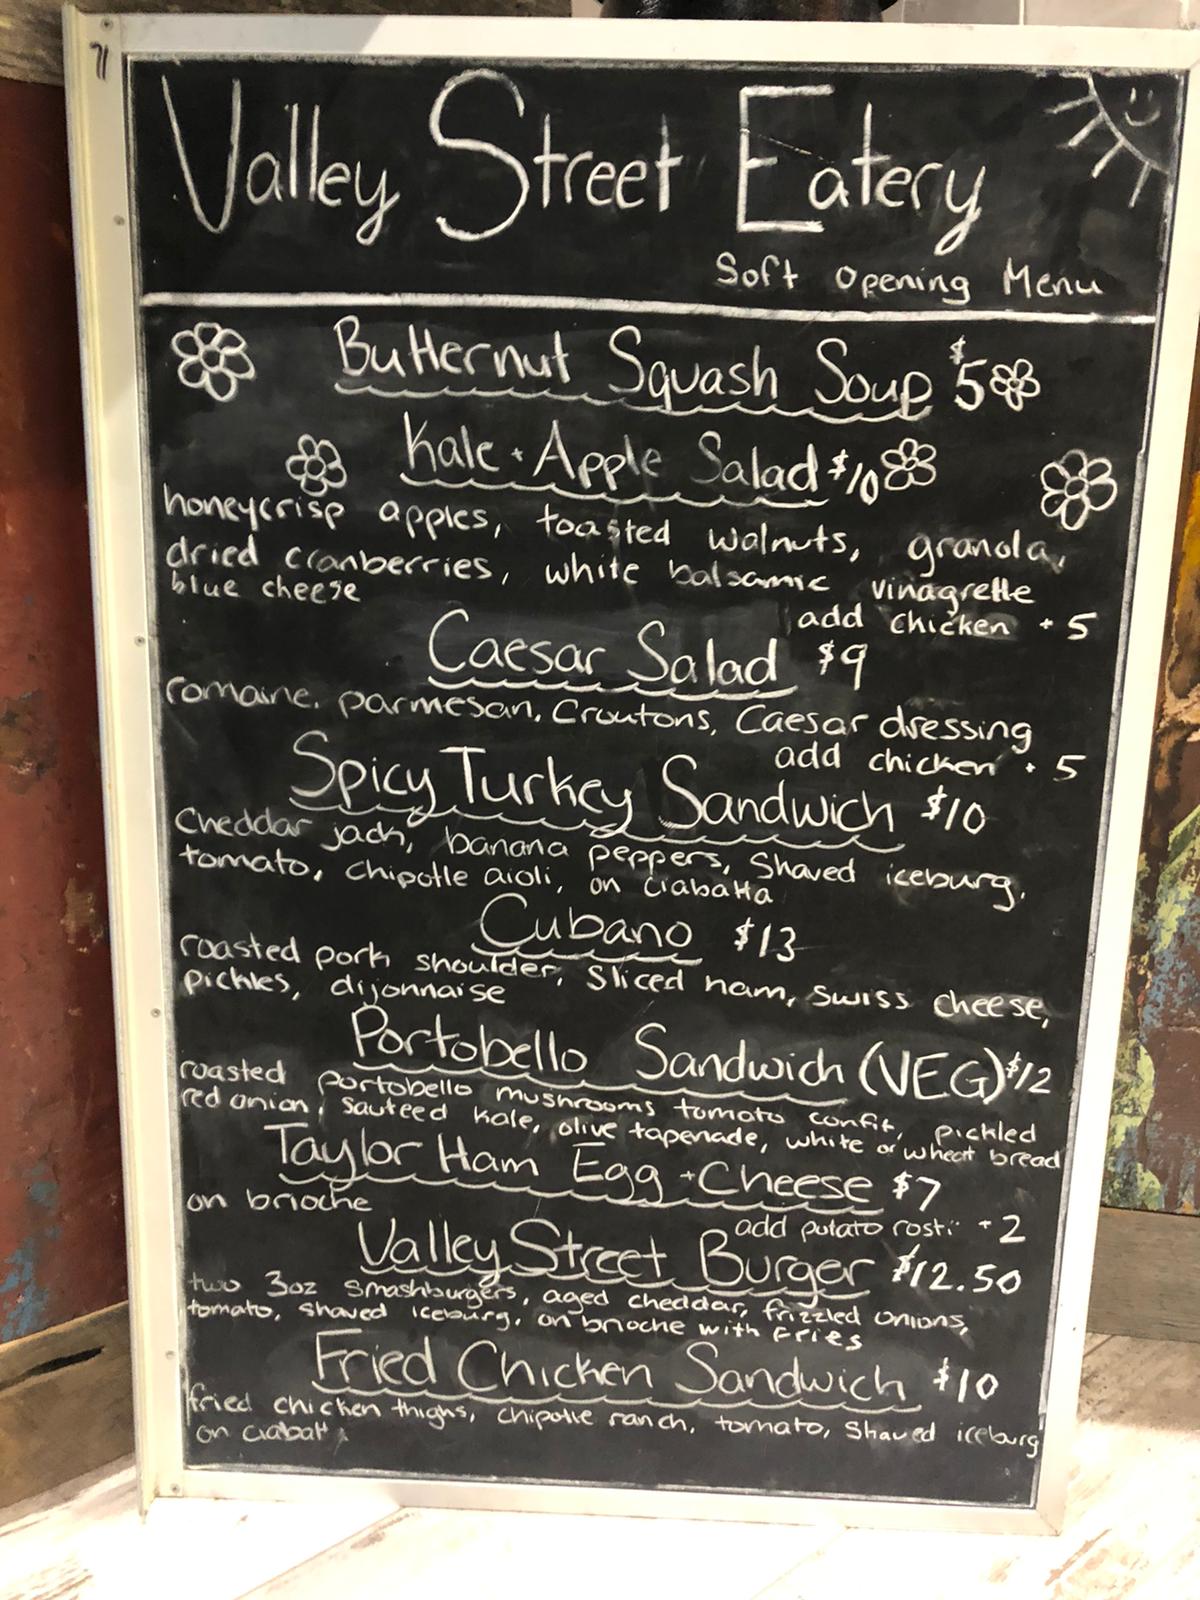 71
Valley Street Eatery
Soft Opening Menu
Butternut Squash Soup $5
Kale + Apple Salad $10
honeycrisp apples, toasted walnuts, granola,
dried cranberries, white balsamic vinagrette
blue cheese
add chicken + 5
Caesar Salad $9
romaine, parmesan, Croutons, Caesar dressing
add chicken + 5
Spicy Turkey Sandwich $10
Cheddar jack, banana peppers, Shaved iceburg,
tomato, Chipotle aioli, on ciabatta
Cubano $13
roasted pork shoulder, Sliced ham, Swiss cheese,
pickles, dijonnaise
Portobello Sandwich (VEG) $12
roasted portobello mushrooms tomato confit, pickled
red onion, Sauteed kale, olive tapenade, white or wheat bread
Taylor Ham Egg + Cheese $7
on brioche
add potato rosti + 2
Valley Street Burger $12.50
two 3oz Smashburgers, aged cheddar, frizzled onions,
tomato, Shaved iceburg, on brioche with Fries
Fried Chicken Sandwich $10
fried chicken thighs, chipotle ranch, tomato, Shaved iceburg
on